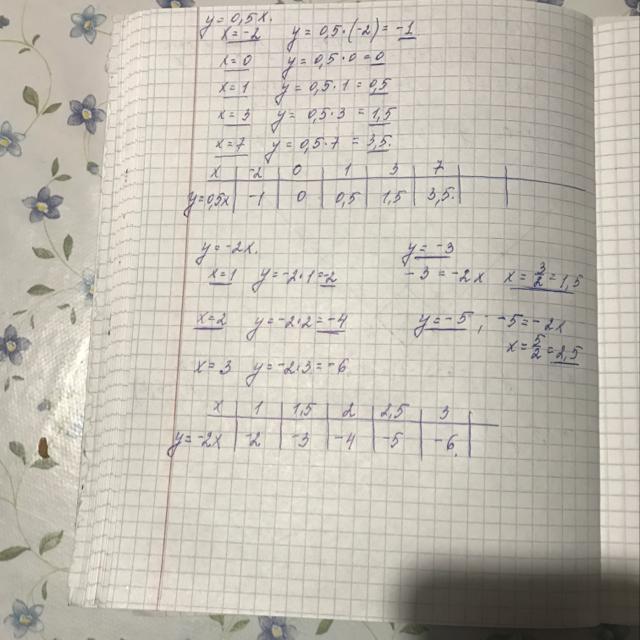 y=0,5x.
x=-2 y=0,5·(-2)=-1
x=0 y=0,5·0=0
x=1 y=0,5·1=0,5
x=3 y=0,5·3=1,5
x=7 y=0,5·7=3,5.
x -2 0 1 3 7
y=0,5x -1 0 0,5 1,5 3,5.
y=-2x. y=-3
x=1 y=-2·1=-2 -3=-2x x=3/2=1,5
x=2 y=-2·2=-4 y=-5, -5=-2x
x=5/2=2,5
x=3 y=-2·3=-6
x 1 1,5 2 2,5 3
y=-2x -2 -3 -4 -5 -6.